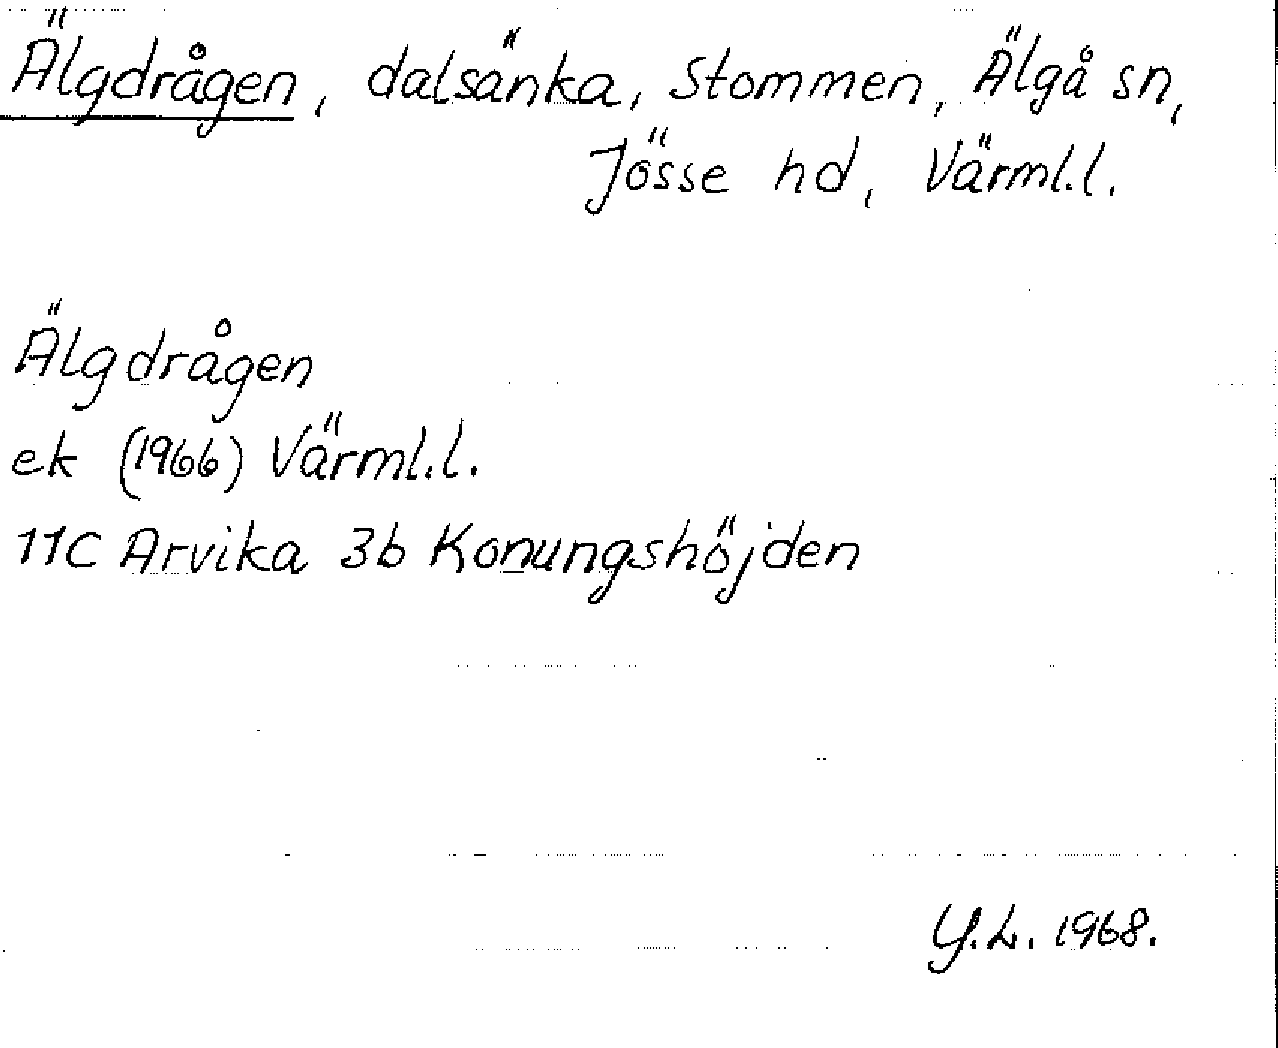 Älgdrågen, dalsänka, Stommen, Älgå sn,
Jösse hd, Värml.l.
Älgdrågen
ek (1966) Värml.l.
11C Arvika 3b Konungshöjden
Y.L. 1968.